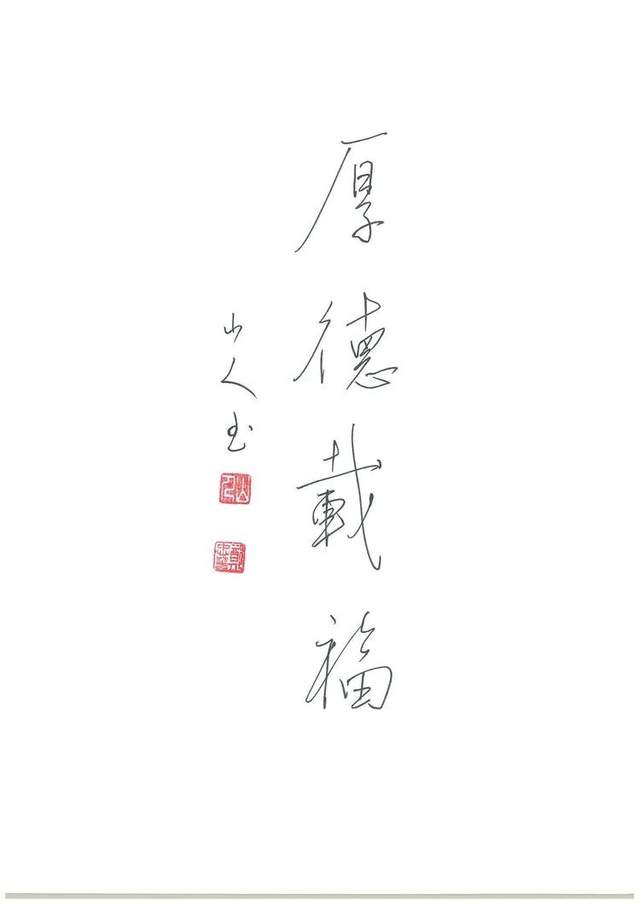 厚德載福
山人书